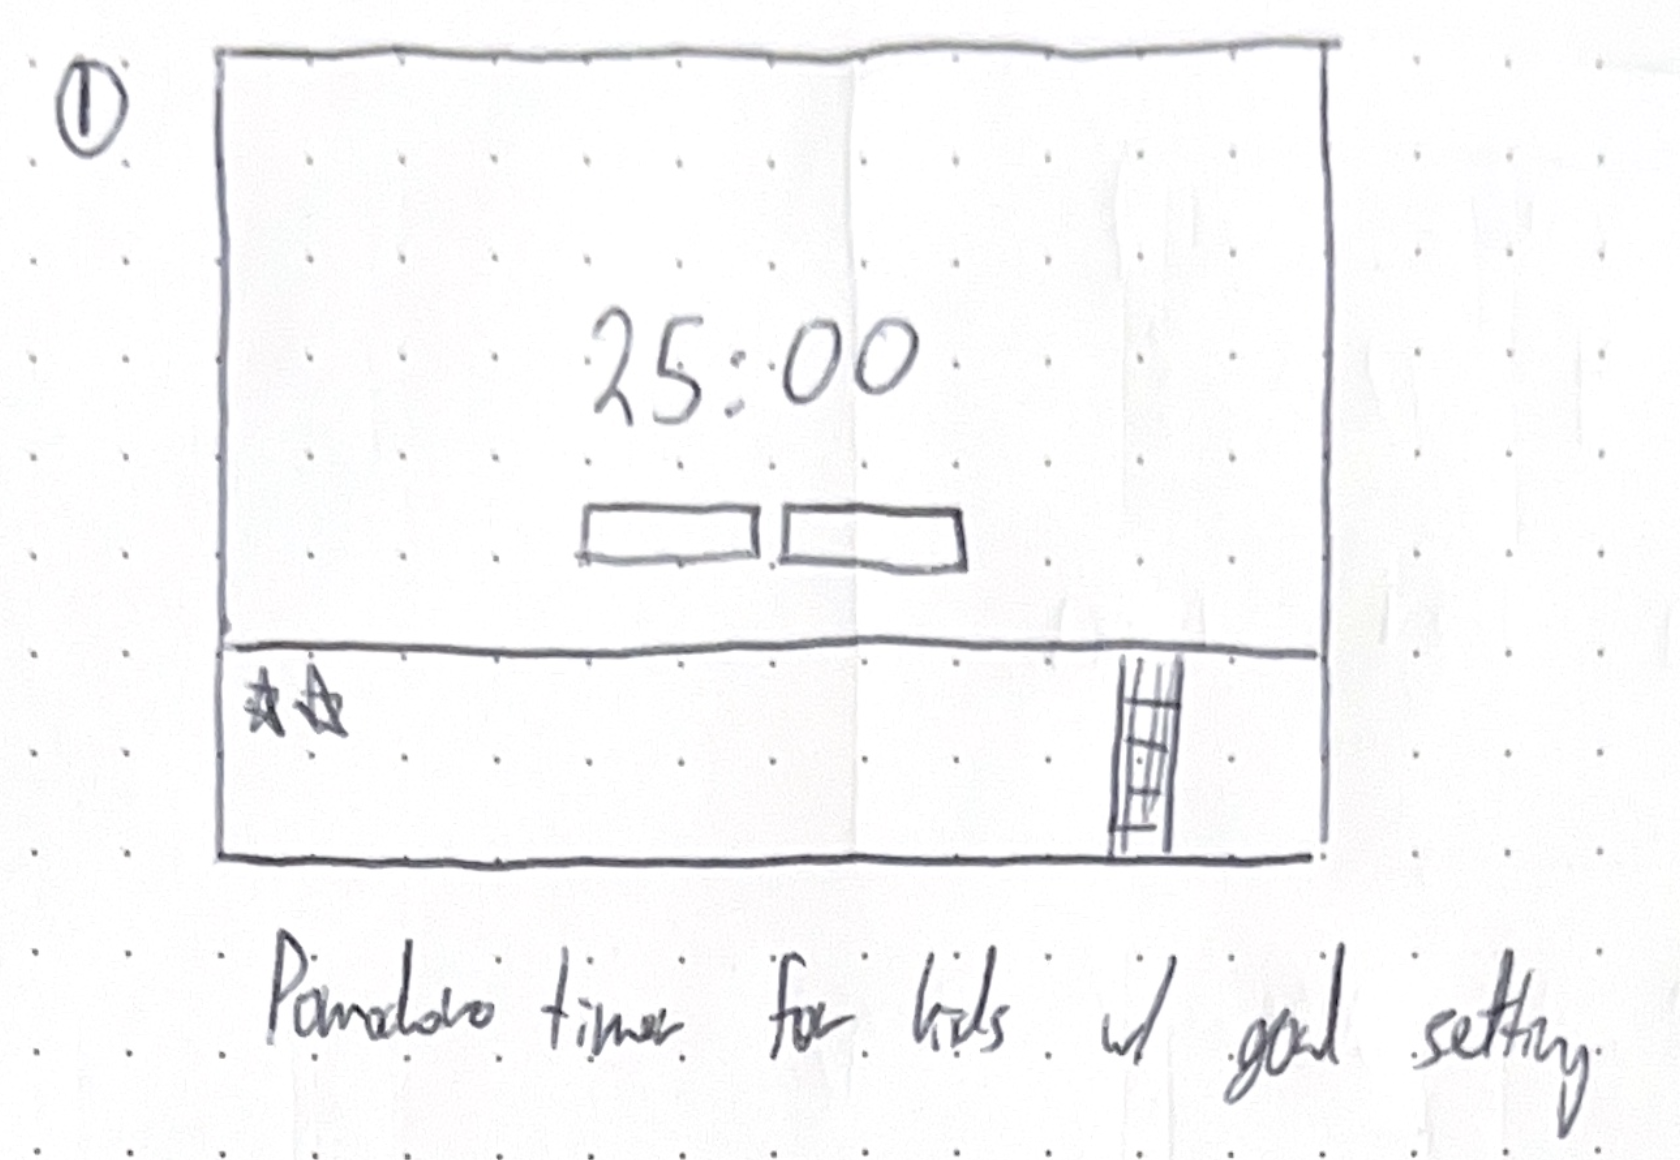 ①
25:00
Pomodoro timer for kids w/ goal setting